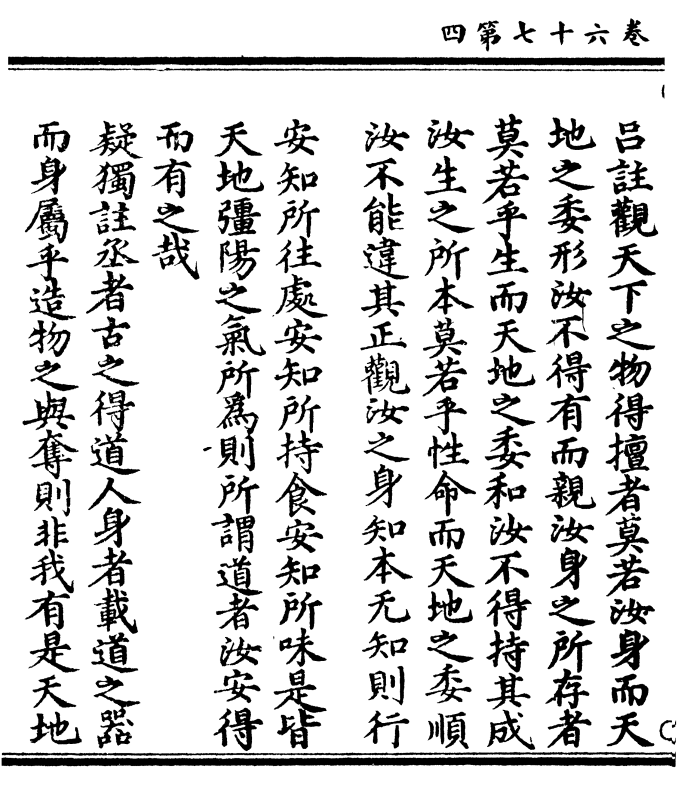 卷六十七第四
吕註觀天下之物得擅者莫若汝身而天
地之委形汝不得有而親汝身之所存者
莫若乎生而天地之委和汝不得持其成
汝生之所本莫若乎性命而天地之委順
汝不能違其正觀汝之身知本无知則行
安知所往處安知所持食安知所味是皆
天地彊陽之氣所爲則所謂道者汝安得
而有之哉
疑獨註丞者古之得道人身者載道之器
而身屬乎造物之與奪則非我有是天地